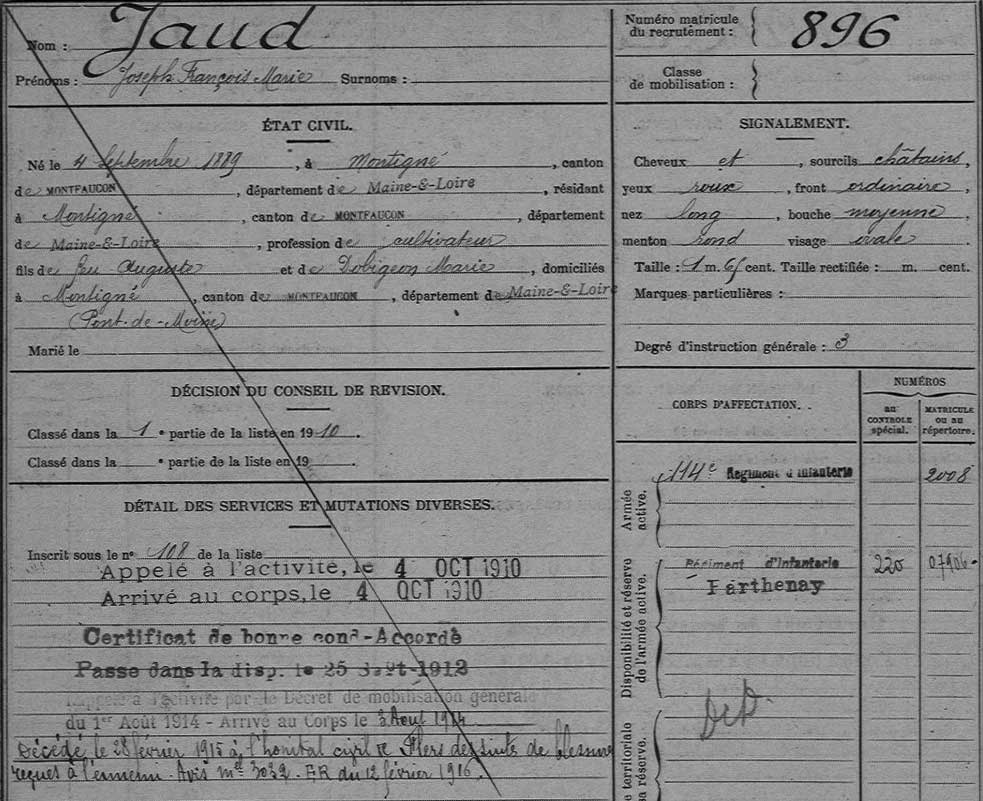 Nom : Jaud
Prénoms : Joseph François Marie Surnoms :
Numéro matricule
du recrutement : 896
Classe
de mobilisation :
ÉTAT CIVIL.
Né le 4 Septembre 1889, à Montigné, canton
de MONTFAUCON, département de Maine-&-Loire, résidant
à Montigné, canton de MONTFAUCON, département
de Maine-&-Loire, profession de cultivateur
fils de feu Auguste et de Dobigeon Marie, domiciliés
à Montigné, canton de MONTFAUCON, département de Maine-&-Loire
(Pont-de-Moine)
Marié le
SIGNALEMENT.
Cheveux et, sourcils châtains,
yeux roux, front ordinaire,
nez long, bouche moyenne,
menton rond visage ovale.
Taille : 1 m. 65 cent. Taille rectifiée : m. cent.
Marques particulières :
Degré d'instruction générale : 3
DÉCISION DU CONSEIL DE REVISION.
Classé dans la 1e partie de la liste en 1910.
Classé dans la e partie de la liste en 19 .
DÉTAIL DES SERVICES ET MUTATIONS DIVERSES.
Inscrit sous le no 108 de la liste
Appelé à l'activité, le 4 OCT 1910
Arrivé au corps, le 4 OCT 1910
Certificat de bonne cond-Accordé
Passé dans la disp. le 25 Sept-1912
Rappelé à l'activité par le Décret de mobilisation générale
du 1er Août 1914 - Arrivé au Corps le 3 Aout 1914
Décédé le 28 février 1915 à l'hopital civil de Flers des suites de blessures
reçues à l'ennemi. Avis me 3032. ER du 12 février 1916.
CORPS D'AFFECTATION.
NUMÉROS
au
CONTROLE
spécial.
MATRICULE
ou au
répertoire.
Armée
active.
114e Régiment d'Infanterie 2008
Disponibilité et réserve
de l'armée active.
Régiment d'Infanterie 220 07906
Parthenay
DCD
territoriale
sa réserve.